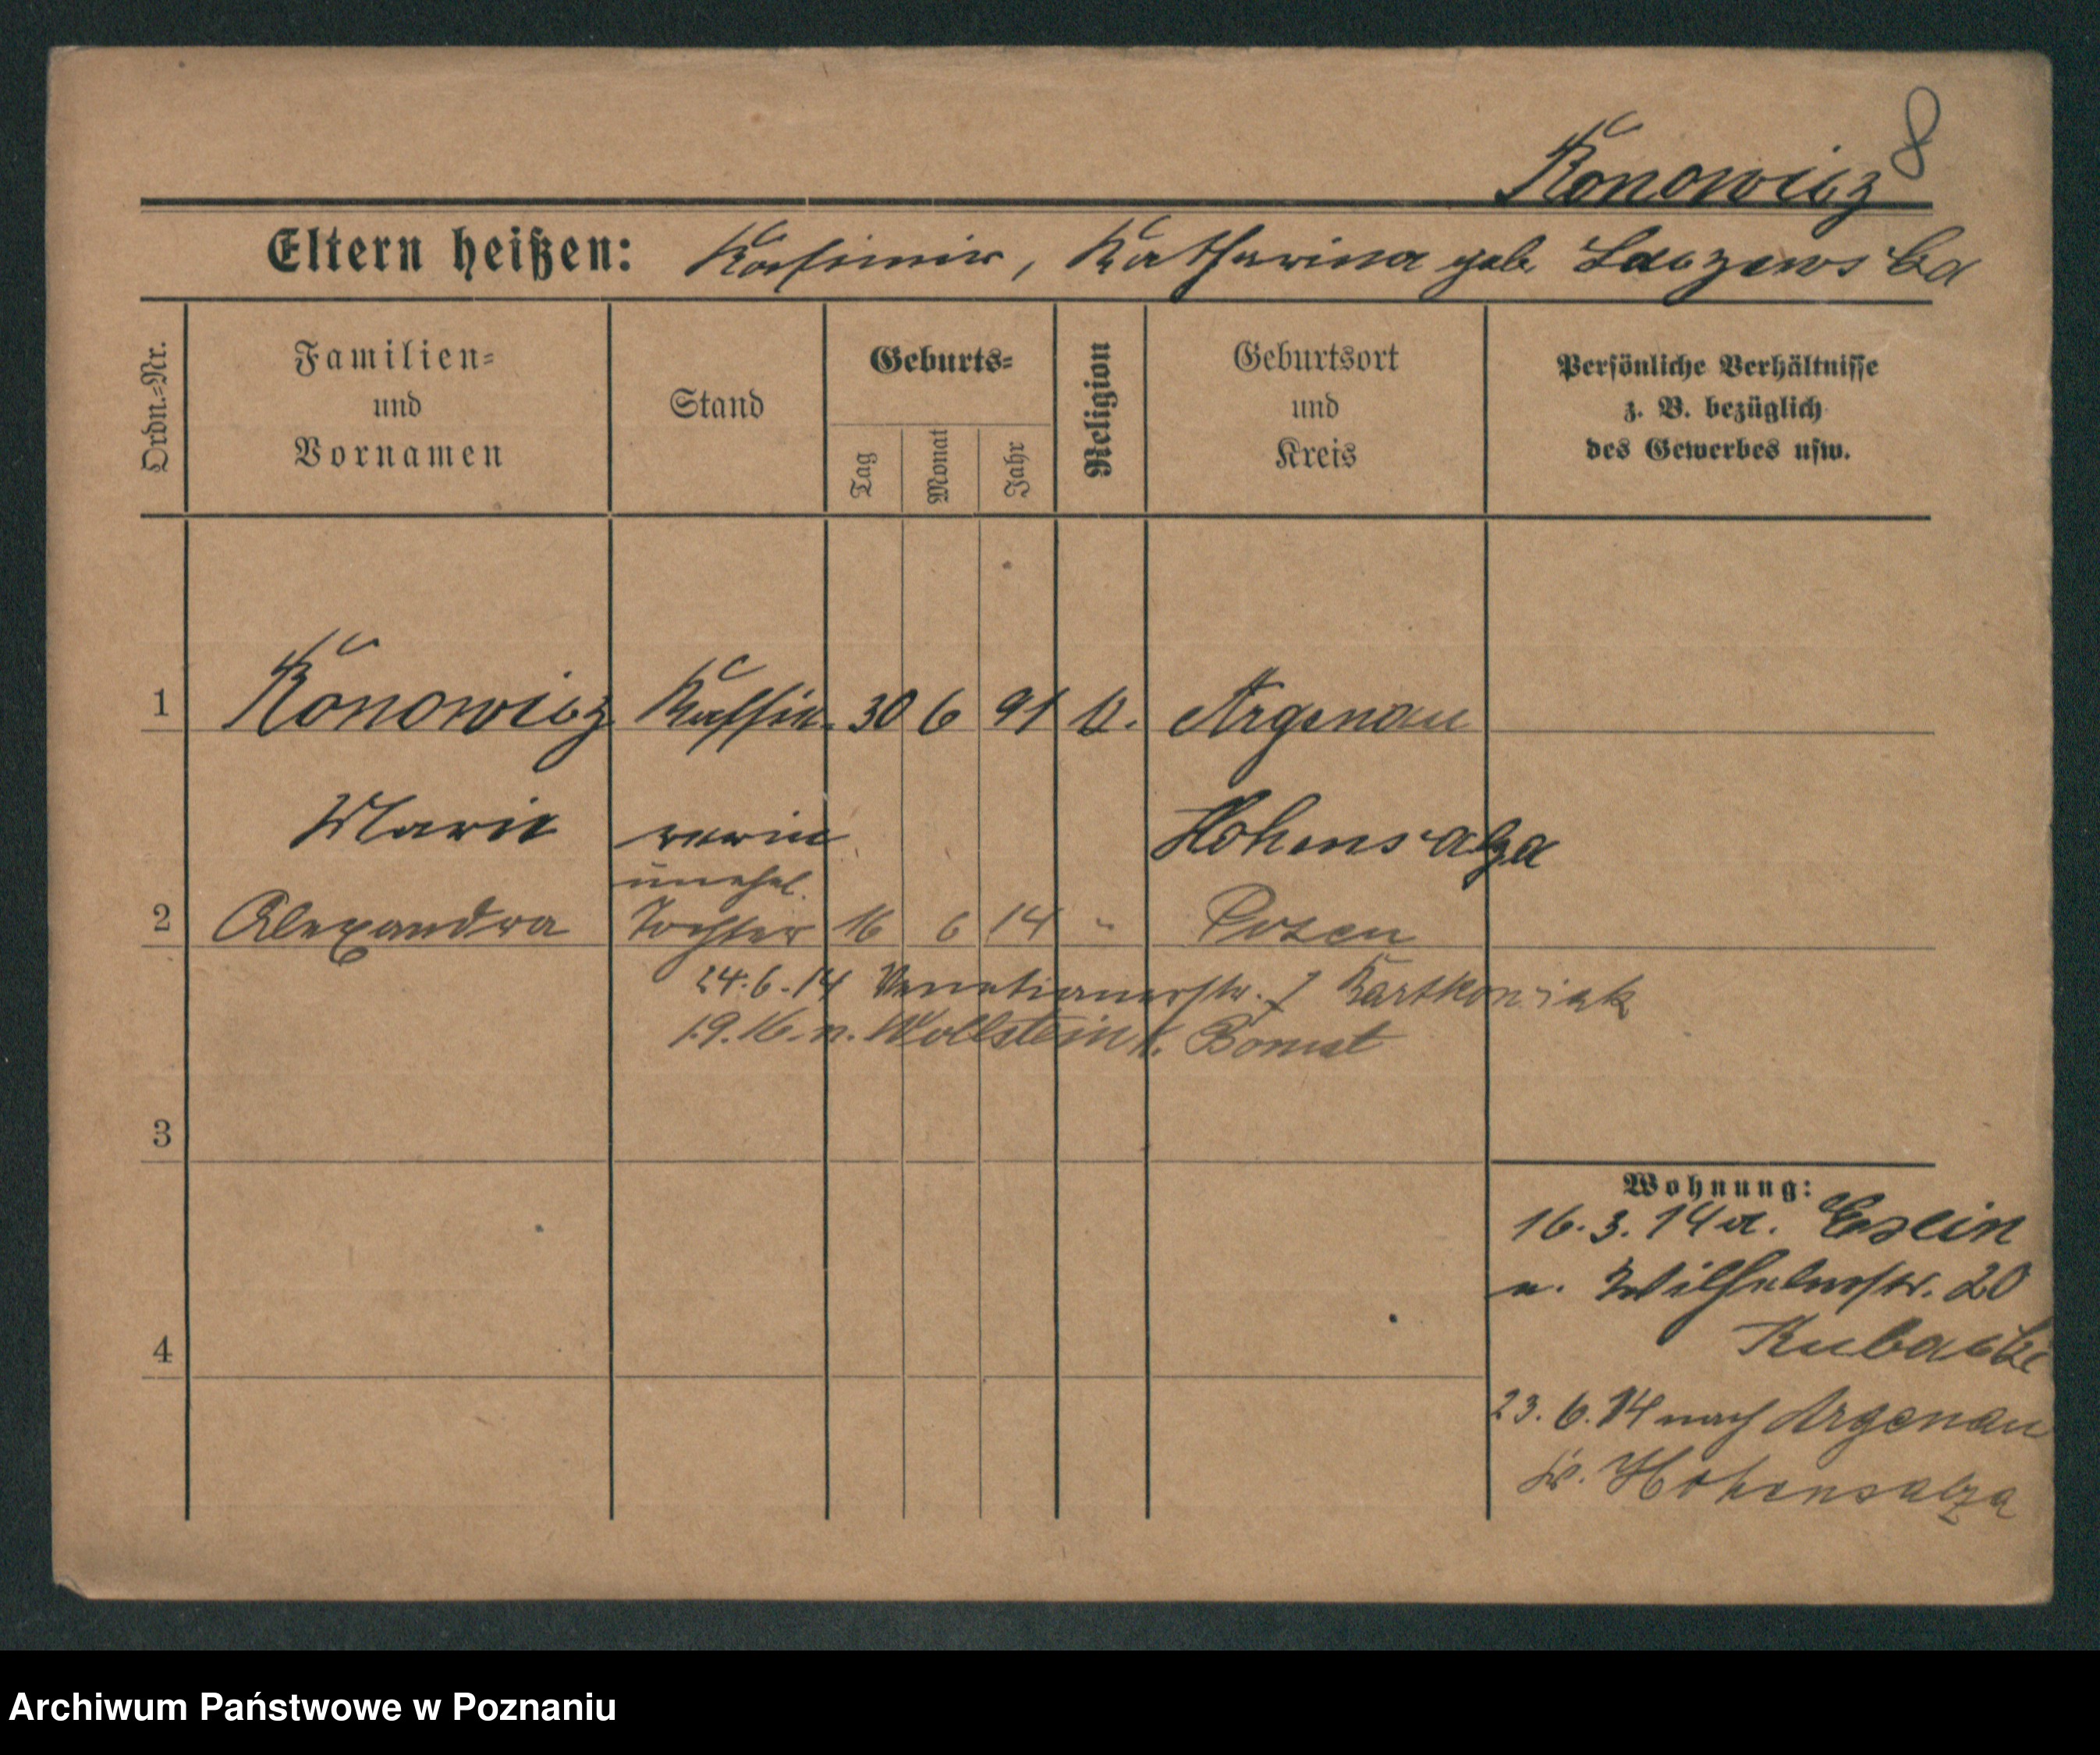 8
Konowicz
Eltern heißen: Kasimir, Katharina geb. Laczewska
Ordn.=Nr.
Familien=
und
Vornamen
Stand
Geburts=
Tag
Monat
Jahr
Religion
Geburtsort
und
Kreis
Persönliche Verhältnisse
z. B. bezüglich
des Gewerbes usw.
1 Konowicz Kassie- 30 6 91 k. Argenau
Marie rerin Hohensalza
unehel.
2 Alexandra Tochter 16 6 14 " Posen
24.6.14 Venetianerstr. 7 Bartkowiak
1.9.16. n. Wollstein k. Bomst
3
Wohnung:
16.3.14 a.
n. Wilhelmstr. 20
Kubacki
4
23.6.14 nach Argenau
Kr. Hohensalza
Archiwum Państwowe w Poznaniu